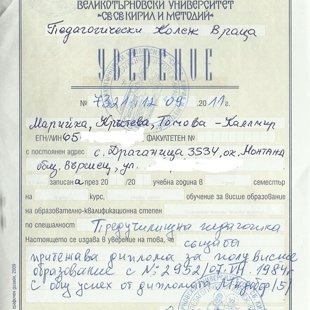 ВЕЛИКОТЪРНОВСКИ УНИВЕРСИТЕТ
"СВ.СВ.КИРИЛ И МЕТОДИЙ"
Педагогически Колеж Враца
УВЕРЕНИЕ
№ 7321-12.09.2011г.
Марийка, Кръстева, Томова-Каялмир
ЕГН/ЛНЧ 65 ФАКУЛТЕТЕН №
с постоянен адрес с. Драганица 3534, ок. Монтана
общ. Вършец, ул.
записана през 20 /20 учебна година в семестър
на курс обучение за висше образование
на образователно-квалификационна степен
по специалност Предучилищна педагогика
Настоящето се издава в уверение на това, че същата
притежава диплома за полувисше
образование с № 2952/07.VII.1984г.
с общ успех от дипломата